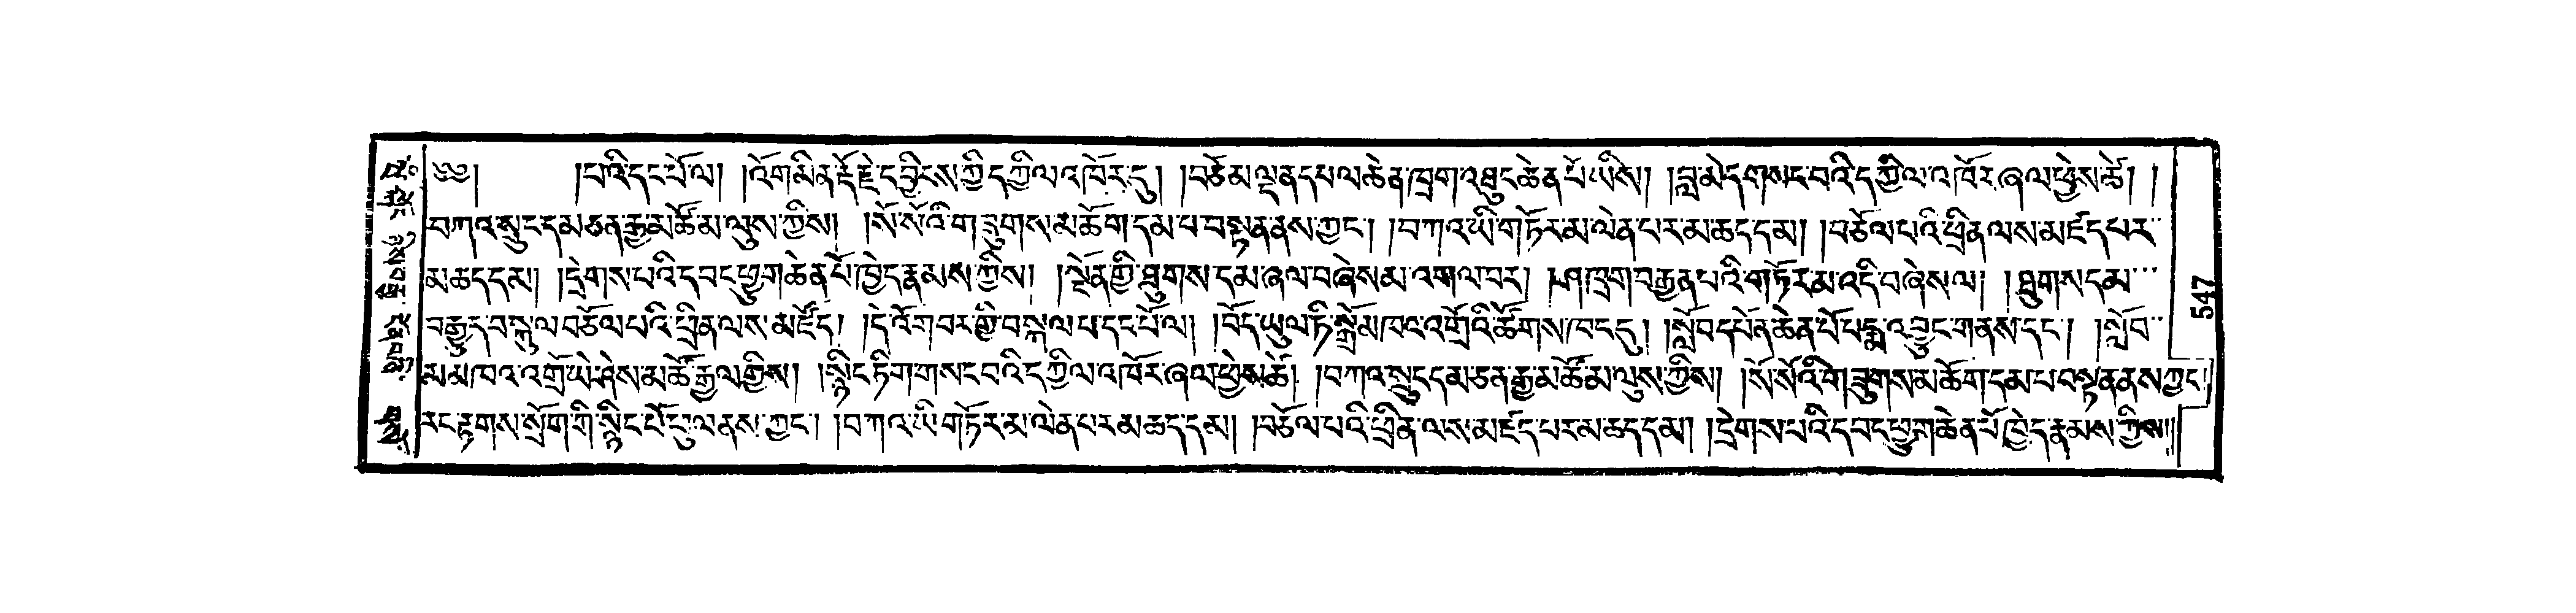 ༄༅། །པའི་དང་པོ་ལ། །འོག་མིན་རྡོ་རྗེ་དབྱིངས་ཀྱི་དཀྱིལ་འཁོར་དུ། །བཅོམ་ལྡན་དཔལ་ཆེན་ཁྲག་འཐུང་ཆེན་པོ་ཡིས། །བླ་མེད་གསང་བའི་དཀྱིལ་འཁོར་ཞལ་ཕྱེས་ཚེ། །
བཀའ་སྲུང་དམ་ཅན་རྒྱ་མཚོ་མ་ལུས་ཀྱིས། །སོ་སོའི་གཟུགས་མཆོག་དམ་པ་བསྟན་ནས་ཀྱང་། །བཀའ་ཡི་གཏོར་མ་ལེན་པར་མ་ཆད་དམ། །བཅོལ་པའི་ཕྲིན་ལས་མཛད་པར་
མ་ཆད་དམ། །དྲེགས་པའི་དབང་ཕྱུག་ཆེན་པོ་ཁྱེད་རྣམས་ཀྱིས། །སྔོན་གྱི་ཐུགས་དམ་ཞལ་བཞེས་མ་འགལ་བར། །ཤ་ཁྲག་བརྒྱན་པའི་གཏོར་མ་འདི་བཞེས་ལ། །ཐུགས་དམ་
བརྒྱུད་བསྐུལ་བཅོལ་པའི་ཕྲིན་ལས་མཛོད། །དེ་འོག་བར་གྱི་བསྐལ་པ་དང་པོ་ལ། །བོད་ཡུལ་ཏི་སྒྲོ་མཁའ་འགྲོའི་ཚོགས་ཁང་དུ། །སློབ་དཔོན་ཆེན་པོ་པདྨ་འབྱུང་གནས་དང་། །སློབ་
མ་མཁའ་འགྲོ་ཡེ་ཤེས་མཚོ་རྒྱལ་གྱིས། །སྙིང་ཏིག་གསང་བའི་དཀྱིལ་འཁོར་ཞལ་ཕྱེས་ཚེ། །བཀའ་སྲུང་དམ་ཅན་རྒྱ་མཚོ་མ་ལུས་ཀྱིས། །སོ་སོའི་གཟུགས་མཆོག་དམ་པ་བསྟན་ནས་ཀྱང་།
རང་རྟགས་སྲོག་གི་སྙིང་པོ་ཕུལ་ནས་ཀྱང་། །བཀའ་ཡི་གཏོར་མ་ལེན་པར་མ་ཆད་དམ། །བཅོལ་པའི་ཕྲིན་ལས་མཛད་པར་མ་ཆད་དམ། །དྲེགས་པའི་དབང་ཕྱུག་ཆེན་པོ་ཁྱེད་རྣམས་ཀྱིས།།